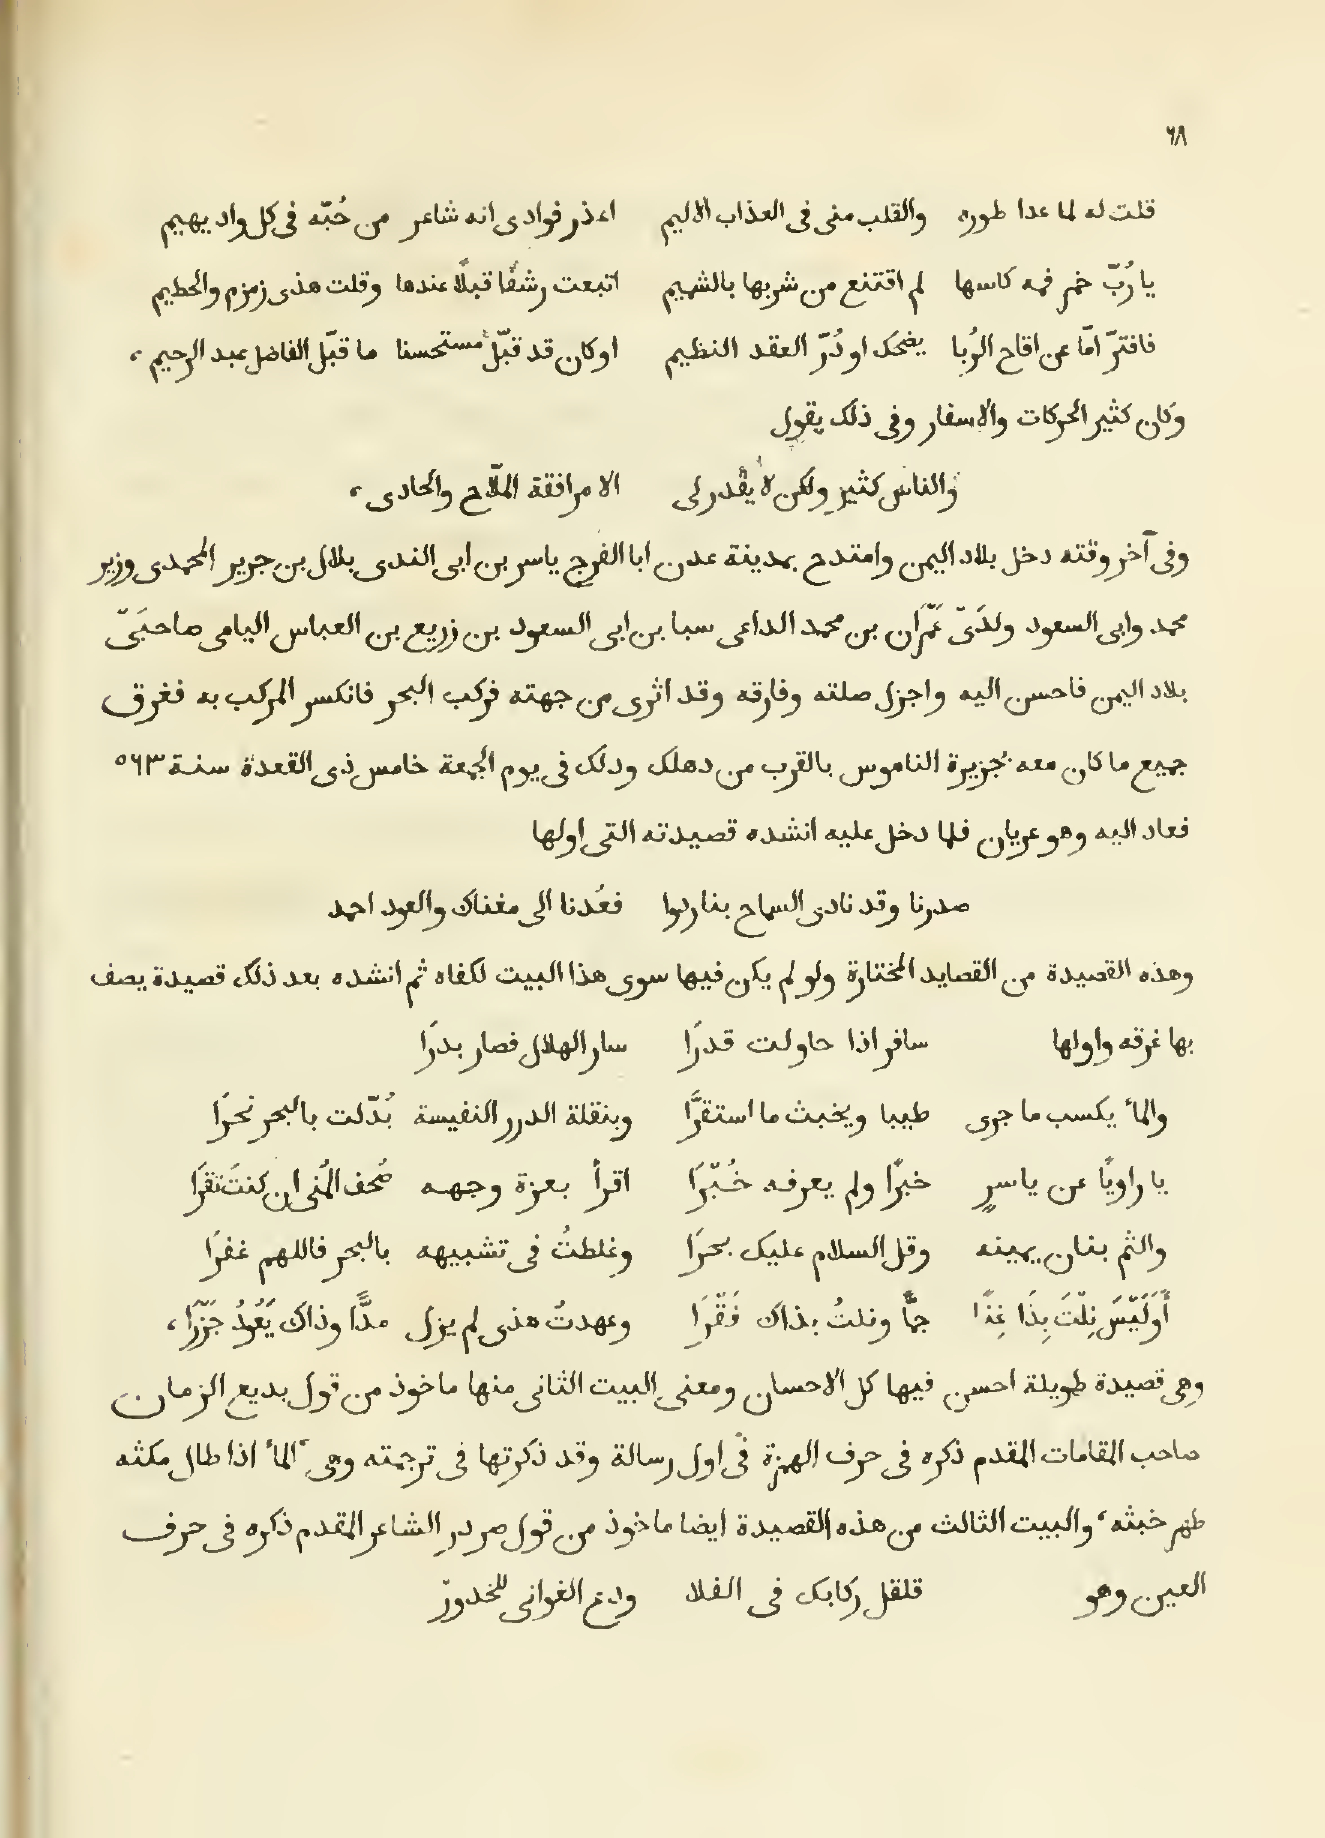 ٦٨
قلت له لما عدا طوره والقلب منى فى العذاب الاليم اعذر فوادى انه شاعر من حُبّه فى كل واد يهيم
يا رُبّ خمر فمه كاسها لم اقتنع من شربها بالشميم اتبعت رشفًا قبلًا عندها وقلت هذى زمزم والحطيم
فافترّ امّا عن اقاح الرُبا يضحك او دُرّ العقد النظيم او كان قد قبّل مستحسنا ما قبّل الفاضل عبد الرحيم،
وكان كثير الحركات والاسفار وفى ذلك يقول
والناس كثير ولكن لا يقدر لى الا مرافقة الملّاح والحادى،
وفى آخر وقته دخل بلاد اليمن وامتدح بمدينة عدن ابا الفرج ياسر بن ابى الندى بلال بن جرير المحمدى وزير
محمد وابى السعود ولدَىّ عمّران بن محمد الداعى سبا بن ابى السعود بن زريع بن العباس اليامى صاحبَىّ
بلاد اليمن فاحسن اليه واجزل صلته وفارقه وقد اثرى من جهته فركب البحر فانكسر المركب به فغرق
جميع ما كان معه بجزيرة الناموس بالقرب من دهلك ودلك فى يوم الجمعة خامس ذى القعدة سنة ٥٦٣
فعاد اليه وهو عريان فلما دخل عليه انشده قصيدته التى اولها
صدرنا وقد نادى السماح بنا ردوا فعُدنا الى مغناك والعود احمد
وهذه القصيدة من القصايد المختارة ولو لم يكن فيها سوى هذا البيت لكفاه ثم انشده بعد ذلك قصيدة يصف
بها غرقه واولها سافر اذا حاولت قدرًا سار الهلال فصار بدرًا
والمأ يكسب ما جرى طيبا ويخبث ما استقرَّا وبنقلة الدرر النفيسة بُدّلت بالبحر نحرًا
يا راويًا عن ياسرٍ خبرًا ولم يعرفه خُبّرًا اقرأ بعزة وجهه صُحف المُنى ان كنتَ تقرًا
والثم بنان يمينه وقل السلام عليك بحرًا وغلطتُ فى تشبيهه بالبحر فاللهم غفرًا
أَوَلَيّسَ نِلّتَ بِذَا غِنًا جمًّا ونلتُ بذاك فَقّرًا وعهدتُ هذى لم يزل مدًّا وذاك يَعُودُ جَزّرًا،
وهى قصيدة طويلة احسن فيها كل الاحسان ومعنى البيت الثانى منها ماخوذ من قول بديع الزمان
صاحب المقامات المقدم ذكره فى حرف الهمزة فى اول رسالة وقد ذكرتها فى ترجمته وهى ُالمأ اذا طال مكثه
ظهر خبثه، والبيت الثالث من هذه القصيدة ايضا ماخوذ من قول صردر الشاعر المقدم ذكره فى حرف
العين وهو قلقل ركابك فى الفلا ودع الغوانى للخدورّ